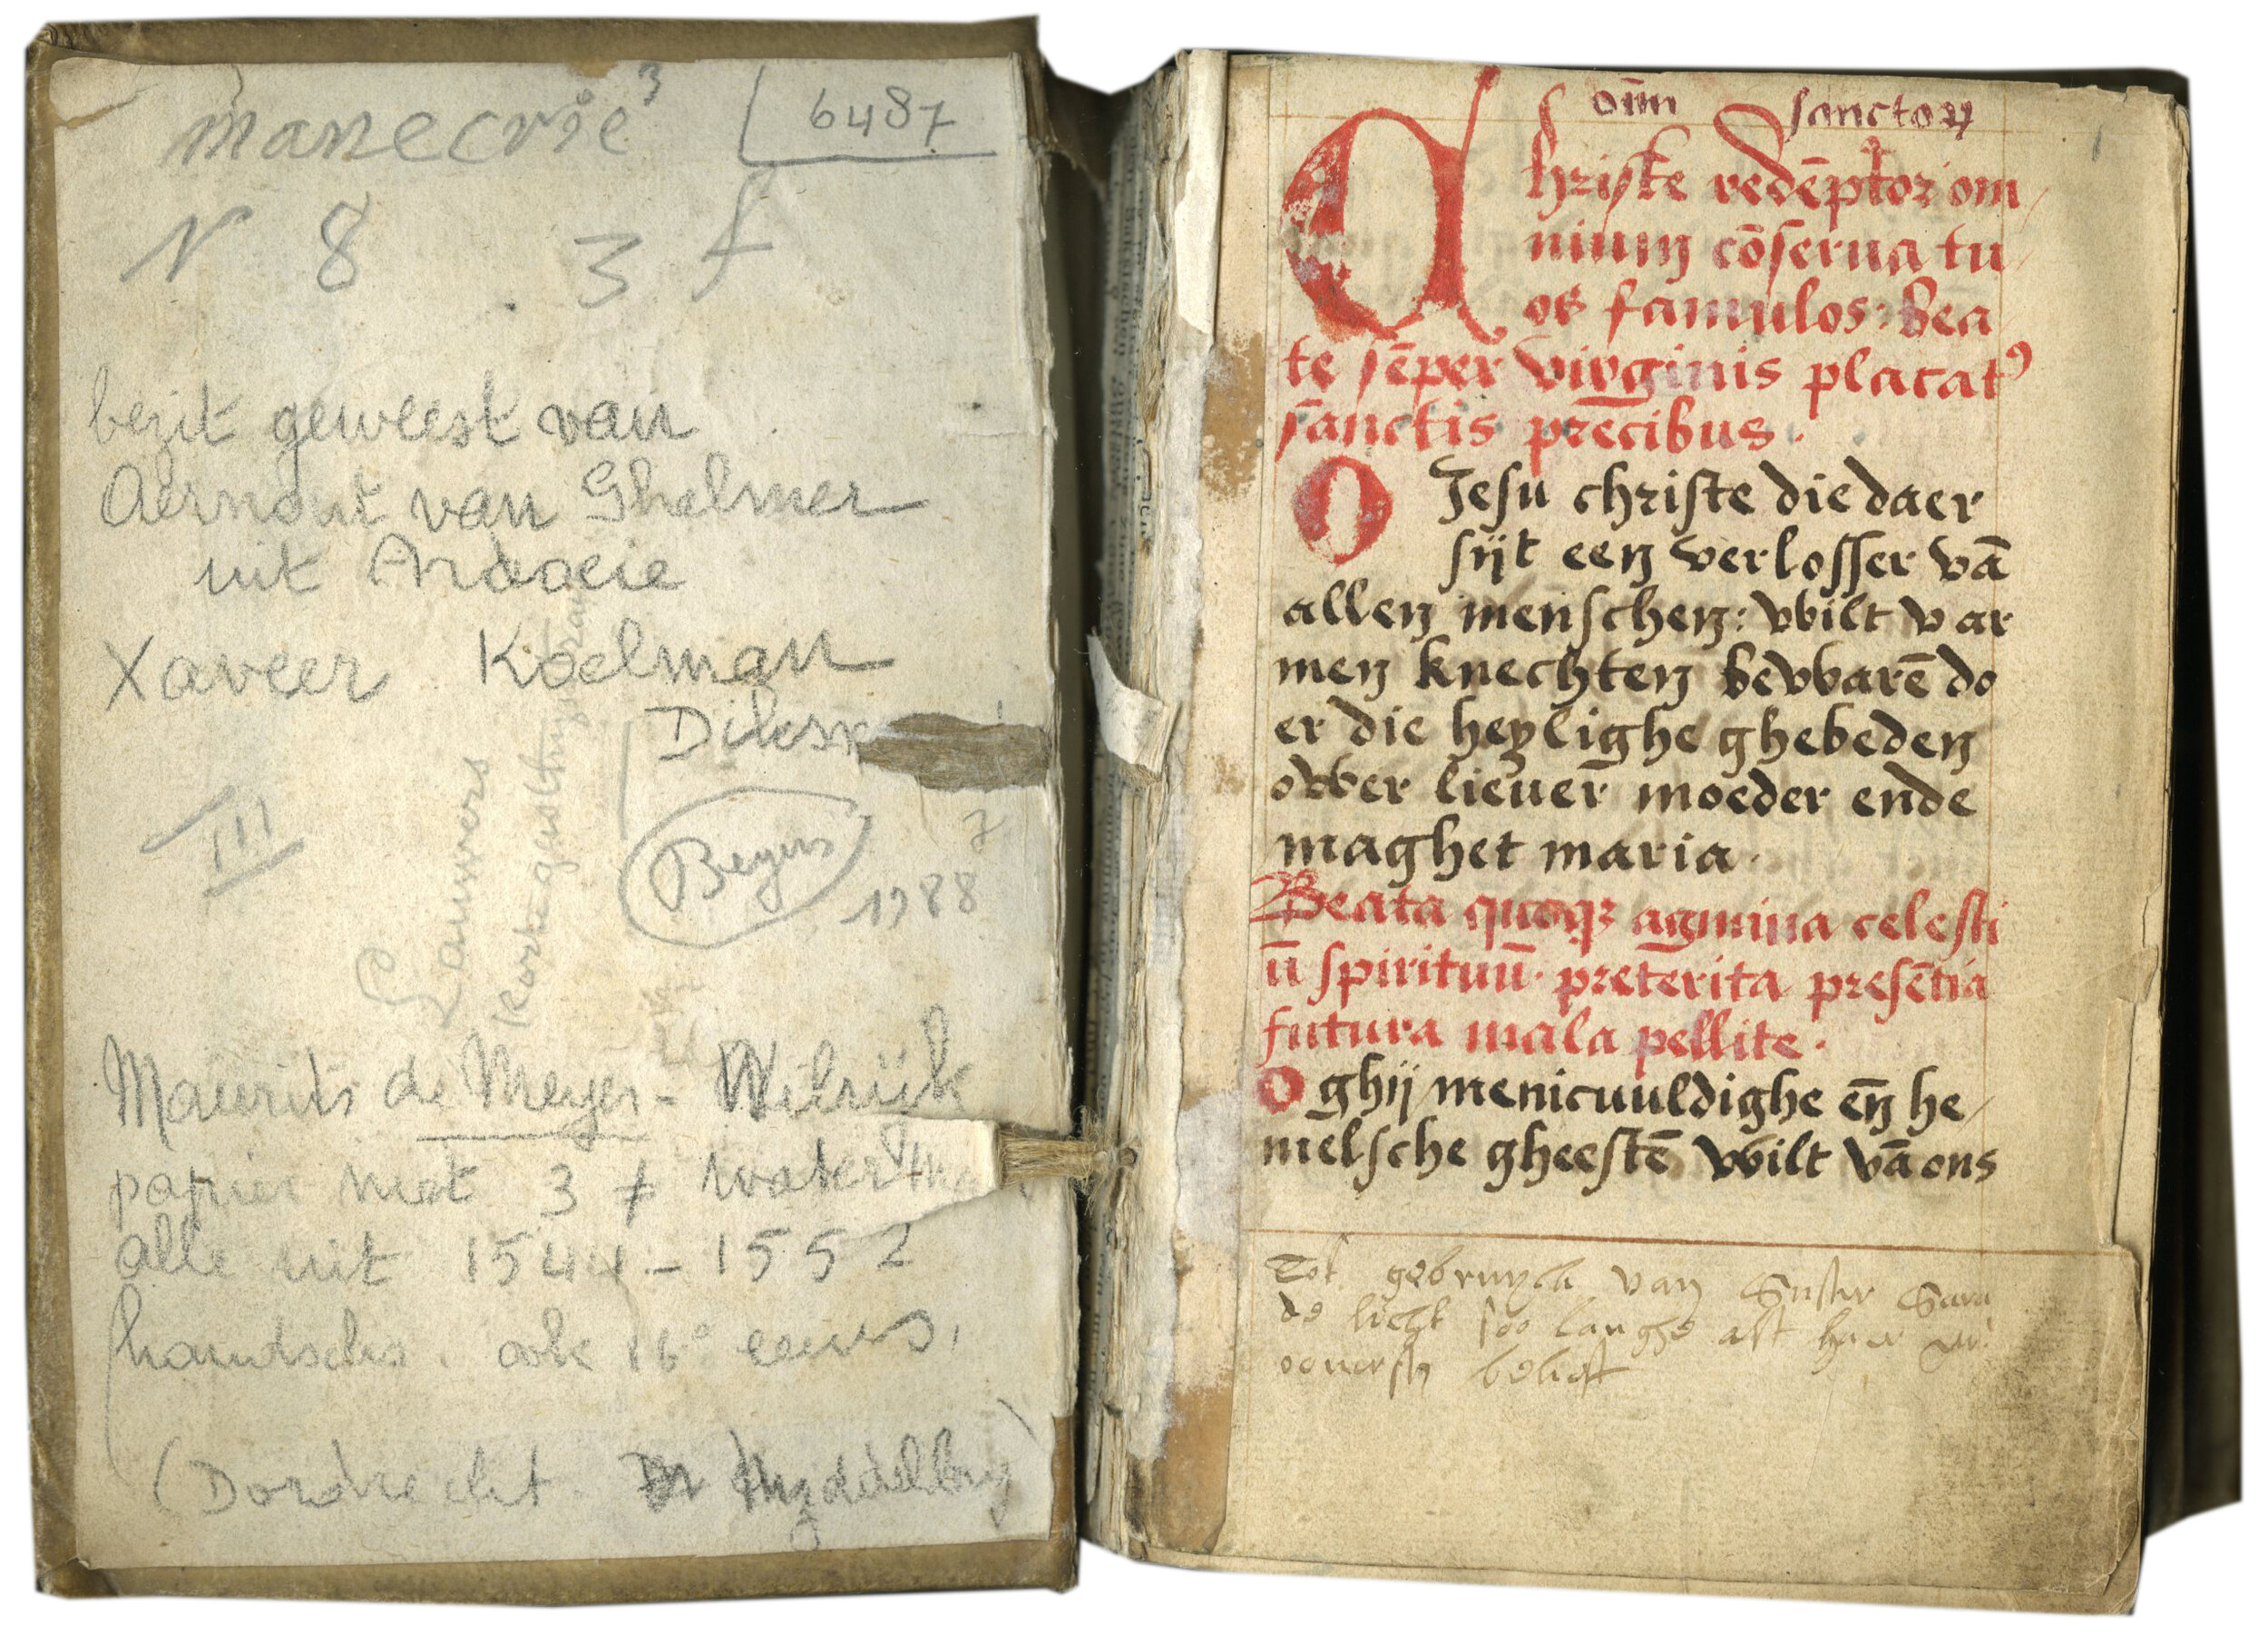 manecrie³
6487
N 8 3 f
bezit geweest van
Aernout van Ghelmer
uit Ardooie
Xaveer Koelman
Diksm
III
Lauwers
Beyers
1988
Maurits de Meyer - Wilrijk
papier met 3 ≠ waterm
alle uit 1544 - 1552
handschr. ook 16e eeuws,
(Dordrecht - Myddelburg)
1
om̄ sanctoꝝ
Christe redēptor om
nium cōserua tu
os famulos: bea
te sēper virginis placatꝰ
sanctis precibus.
O Jesu christe die daer
sijt een verlosser vā
allen menschen: wilt v ar
men knechten bewarē do
er die heylighe ghebeden
ower lieuer moeder ende
maghet maria.
Beata quoqꝫ agmina celesti
ū spirituū. preterita presētia
futura mala pellite.
o ghij menicuuldighe en̄ he
melsche gheestē wilt vā ons
Tot gebruych van Suster Sara
de licht soo langhe alst haer
oversten belieft